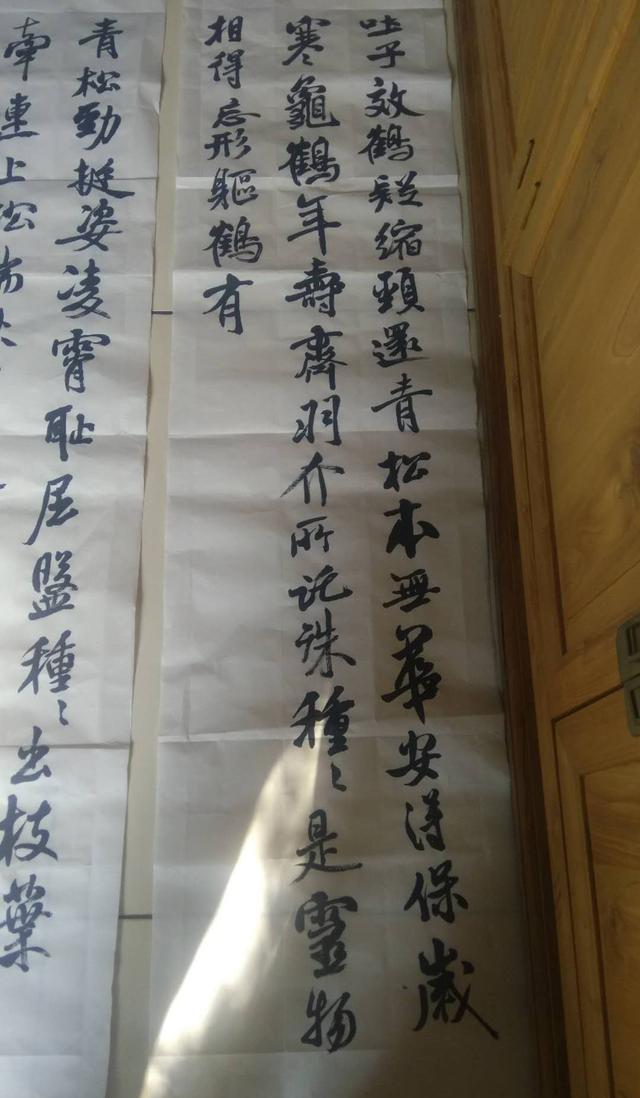 吐子效鶴疑縮頸還青松本無華安得保歲
寒龜鶴年壽齊羽介所託殊種〻是靈物
相得忘形軀鶴有
青松勁挺姿凌霄恥屈盤種〻出枝葉
牽連上松端